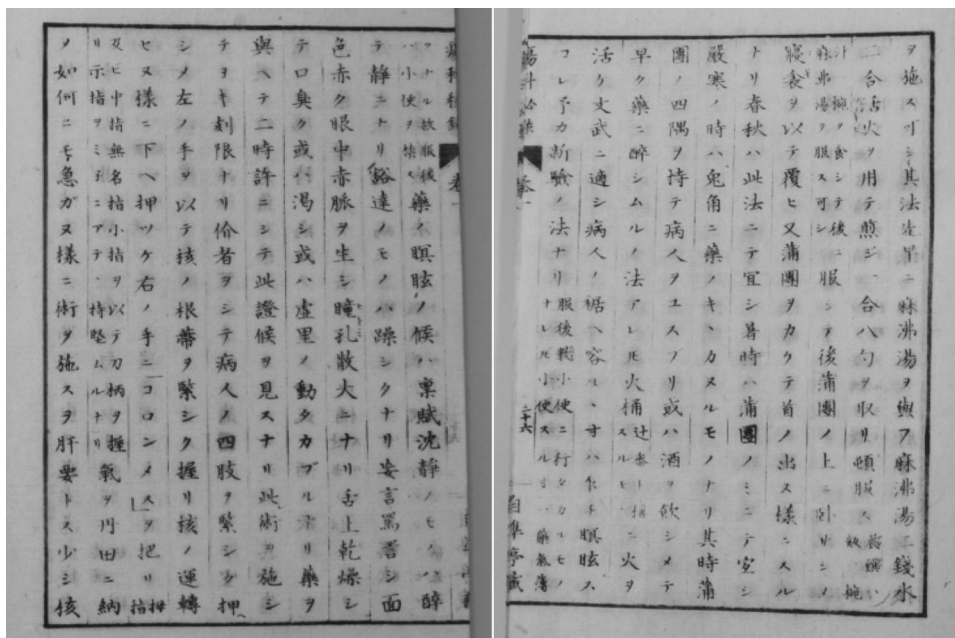 ヲ施スヿシ其法先第ニ麻沸湯ヲ與フ麻沸湯二錢水
二合活火ヲ用テ煎ジ一合八勺ヲ取リ頓服ス
汁椀ヲ食シテ後ニ服
麻沸湯ヲ服ス可シ
シテ後蒲團ノ上ニ臥リシメ
寢食ヲ以テ覆ヒ又蒲團ヲカクテ首ノ出ス樣ニスル
ナリ春秋ハ此法ニテ宜シ暑時ハ蒲團ノミニテ宜シ
嚴寒ノ時ハ兎角ニ藥ノキヽカヌルモノナリ其時蒲
團ノ四隅ヲ持テ病人ヲユスフリ或ハ酒ヲ飲シメテ
早ク藥ニ醉シムルノ法アレ𪜈火桶
スルヒ
ニ火ヲ
活ケ文武ニ適シ病人ノ裾ヘ容ルヽ寸ハ暝眩ス
コレ予カ斷驗ノ法ナリ
服後戰小便ニ行タカルモノ
ナレ𪜈小便スル寸ハ藥氣薄
瘍科祕錄
卷一
二十六
自準亭藏
クナル故服後
ハ小便ヲ禁ス
藥ノ瞑眩ノ候ハ稟賦沈靜ノモノハ醉
テ靜ニナリ豁達ノモノハ躁シクナリ妄言罵詈シ面
色赤ク眼中赤脉ヲ生シ瞳孔散大ニナリ舌上乾燥シ
テ口臭ク或ハ渴シ或ハ虛里ノ動タカブルナリ藥ヲ
與ヘテ二時許ニシテ此證候ヲ見スナリ此術ヲ施シ
テヨキ刻限ナリ伱者ヲシテ病人ノ四肢ヲ緊シク押
シメ左ノ手ヲ以テ核ノ根蔕ヲ緊シク握リ核ノ運轉
セヌ樣ニ下ヘ押ツケ右ノ手ニコロンメスヲ把リ
拇指
及ヒ中指無名指小指ヲ以テ刀柄ヲ握氣ヲ丹田ニ納
リ示指ヲミ子ニアテヽ持堅ムルナリ
ヲ如何ニモ急ガヌ樣ニ術ヲ施スヲ肝要トス少シ核